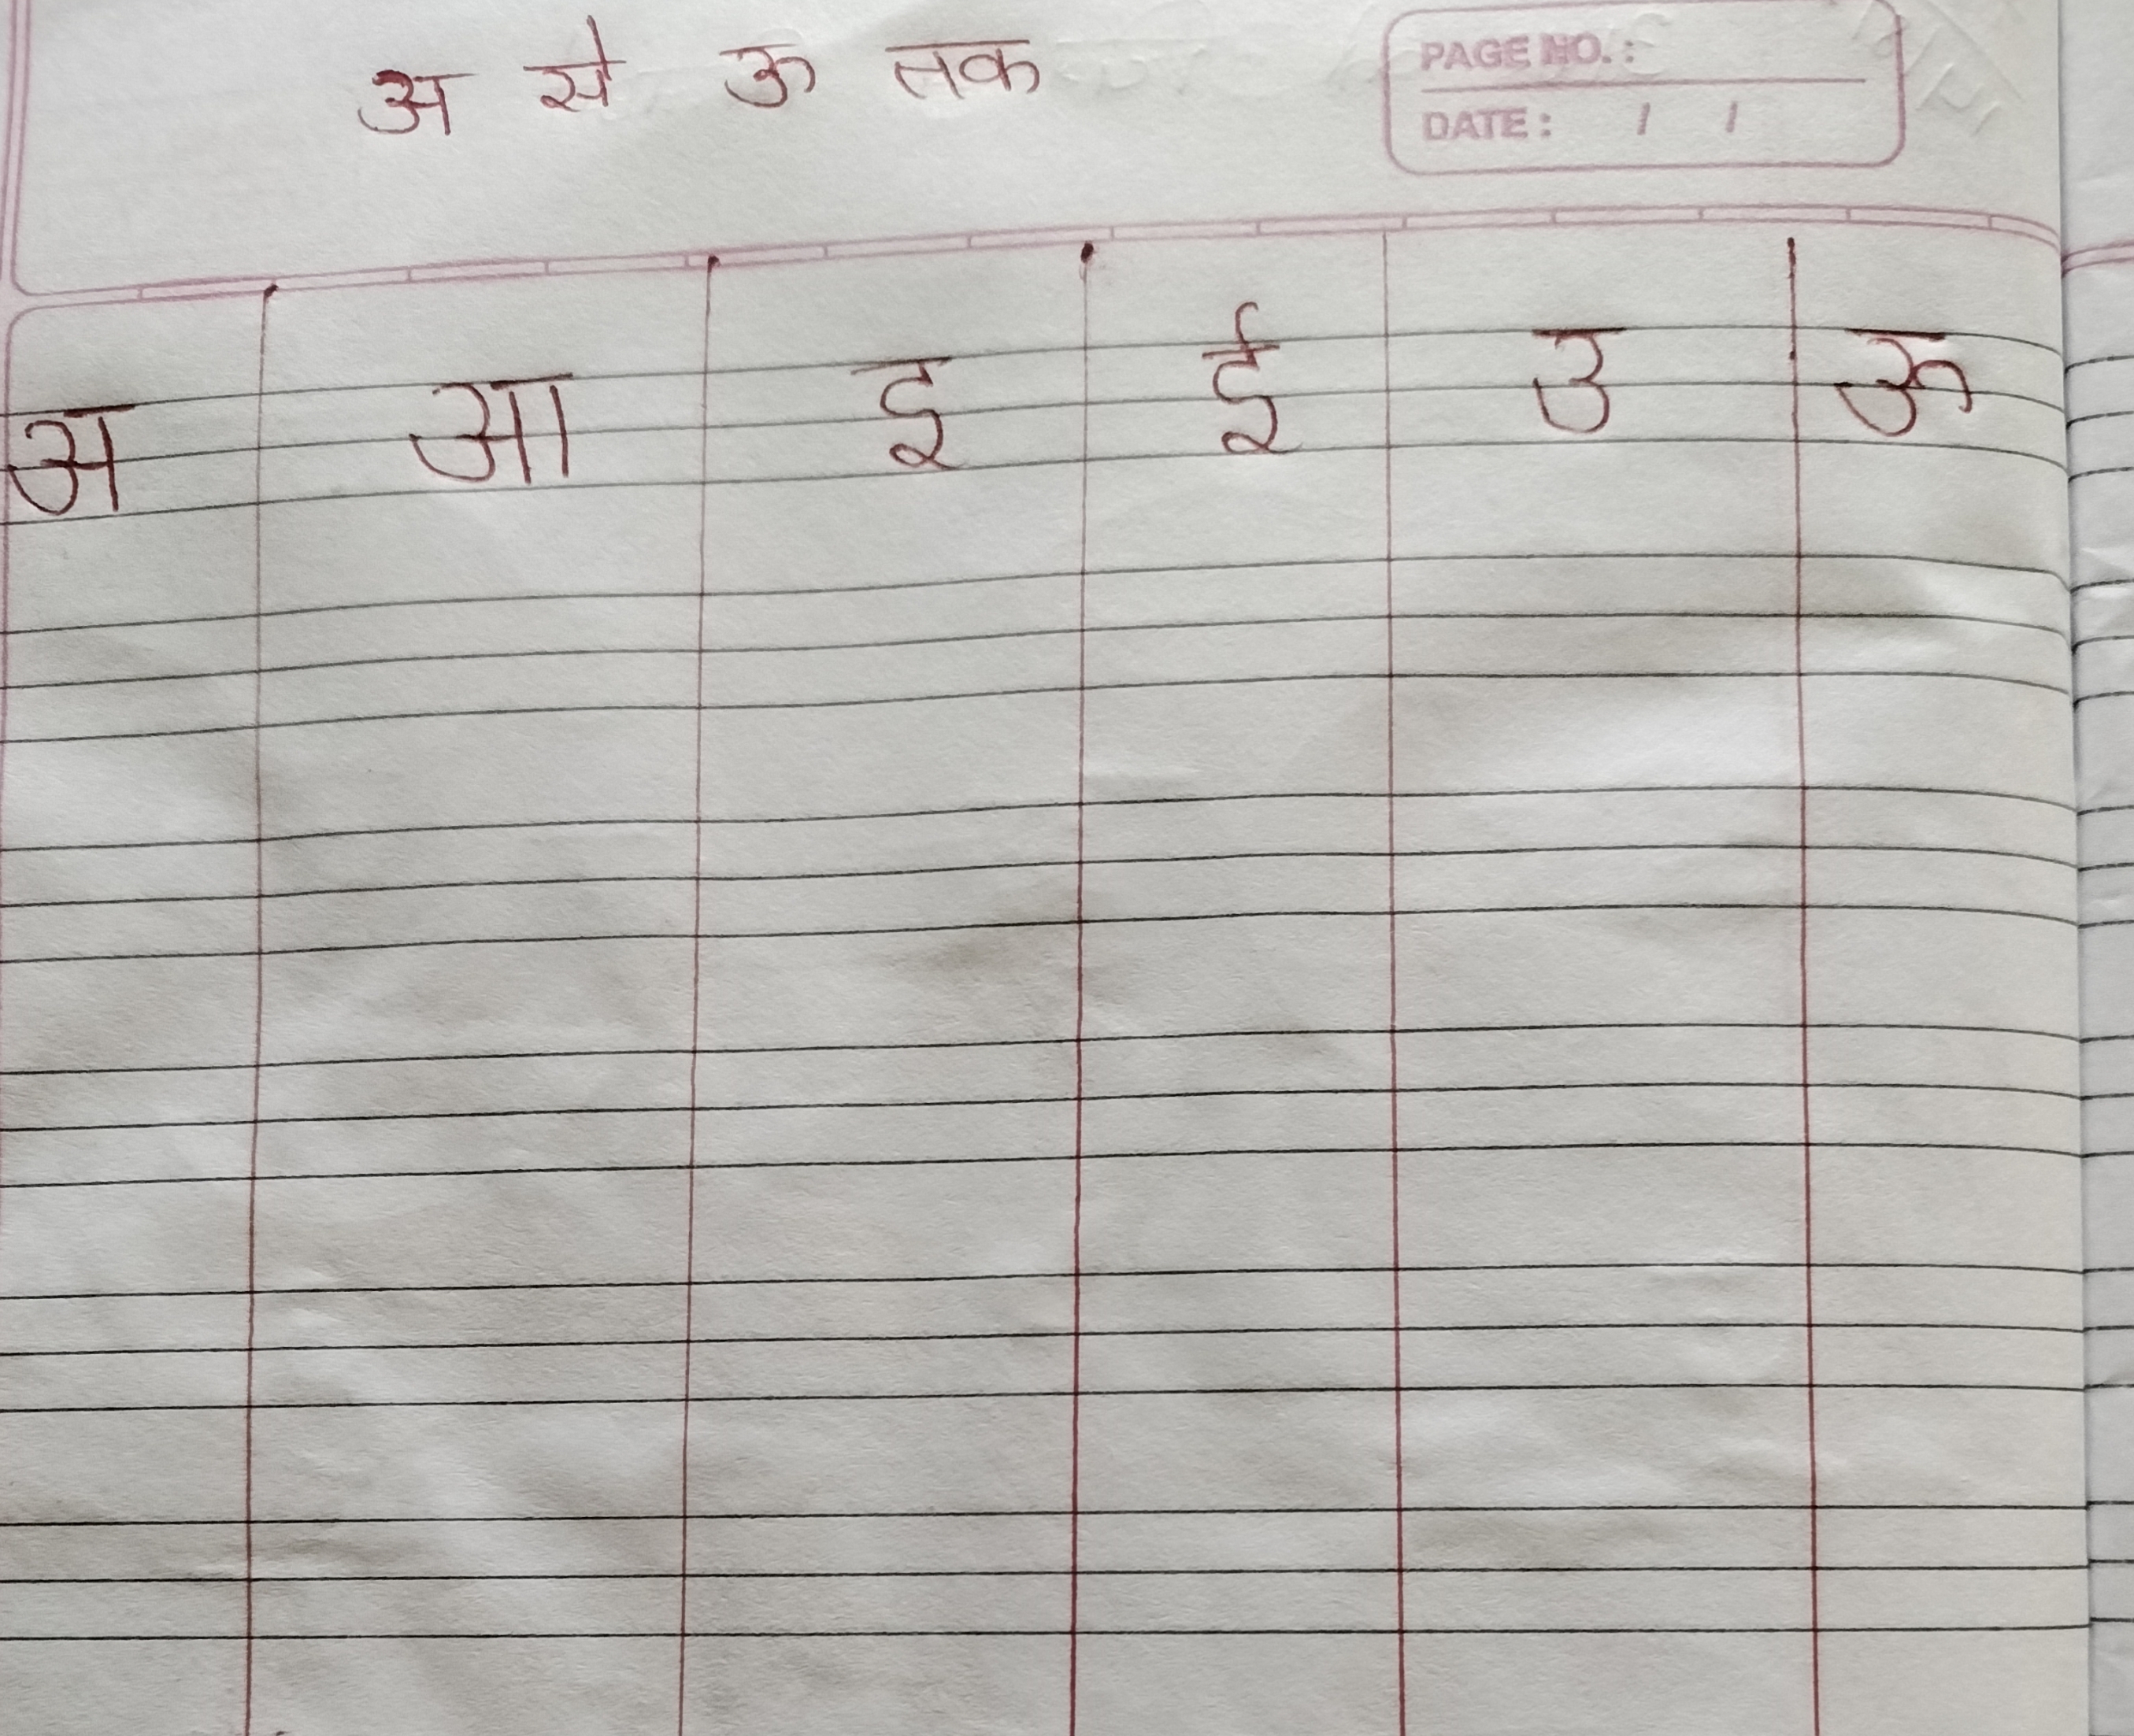 अ से ऊ तक
PAGE NO. :
DATE : / /
अ आ इ ई उ ऊ